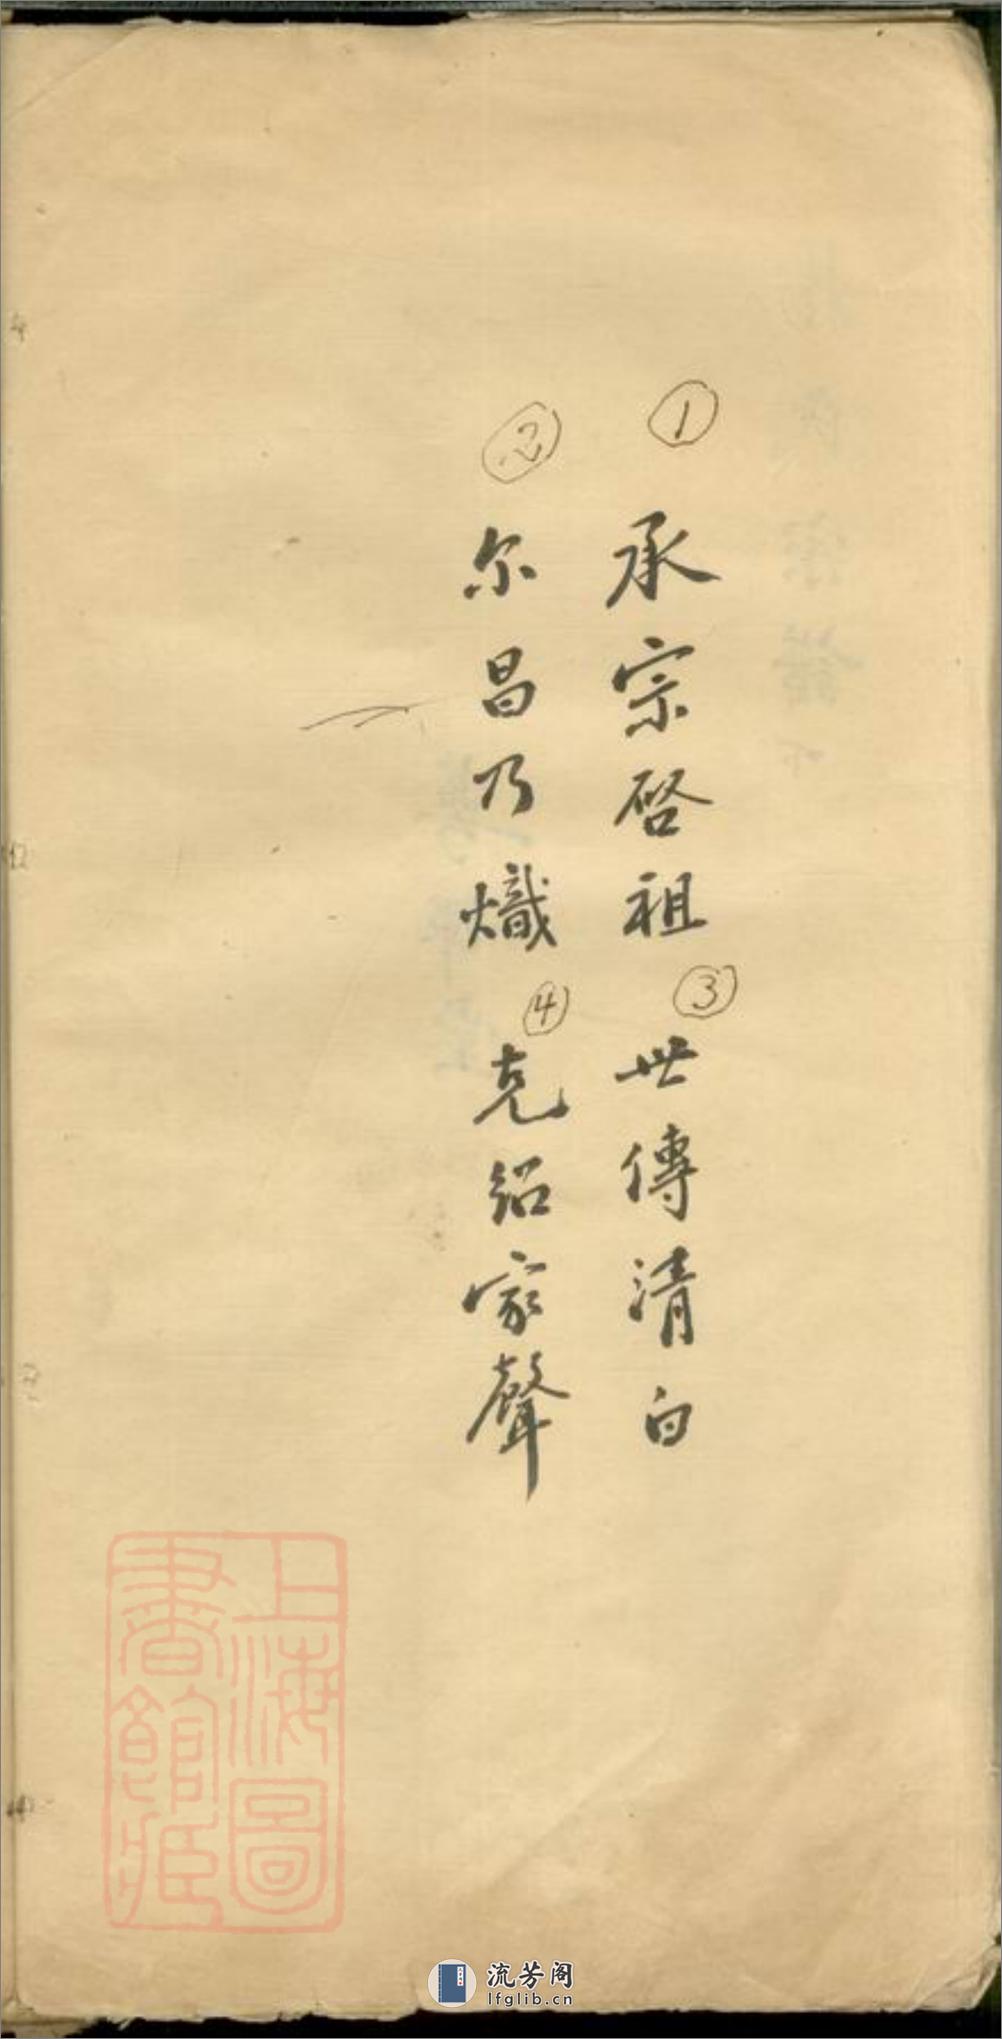 ① 承宗启祖 ③ 世傳清白
② 尔昌乃熾 ④ 克紹家聲
上海圖
書館藏
流芳阁
lfglib.cn